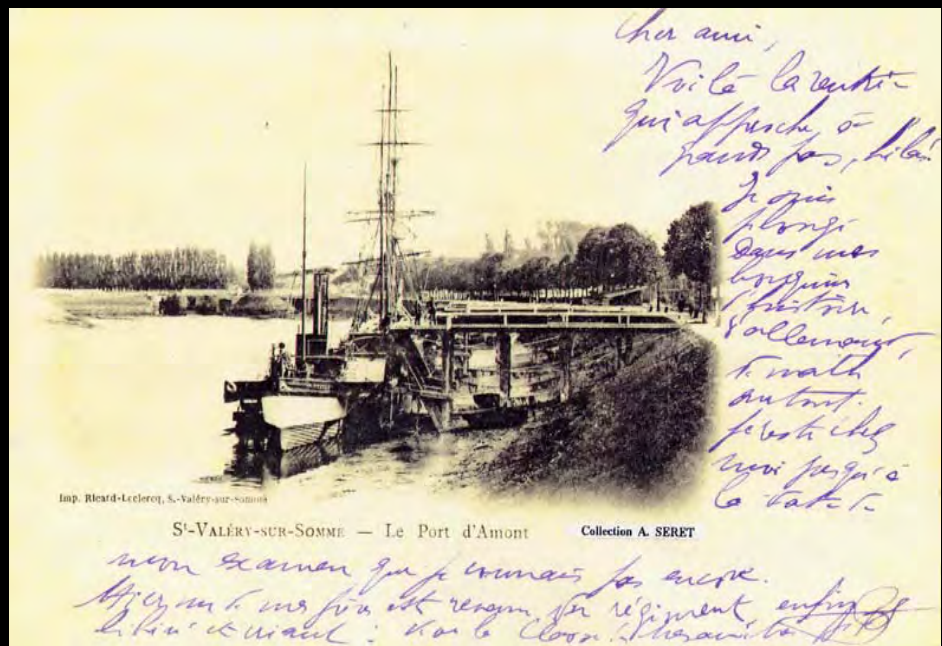 Cher ami,
Voilà la rentrée
qui approche à
grands pas, hélas
Je suis
plongé
dans mes
bouquins
d'histoire,
d'allemand,
de math
surtout.
Je reste chez
moi jusqu'à
la date de
Imp. Ricard-Leclercq, S.-Valéry-sur-Somme
St-VALÉRY-SUR-SOMME — Le Port d'Amont
Collection A. SERET
mon examen que je connais pas encore.
Hier un de mes frères est revenu du régiment, enfin
libéré et criant : Vive la Classe !